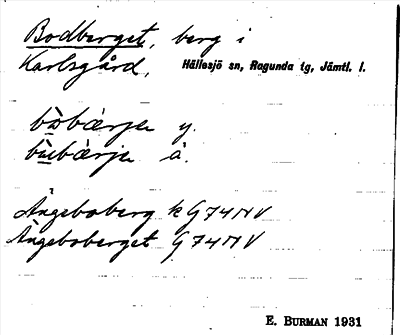 Bodberget, berg i
Karlsgård, Hällesjö sn, Ragunda tg, Jämtl. l.
bòbærje y.
bùbærje ä.
Ängeboberg k G 74 N V
Ängeboberget G 74 N V
E. BURMAN 1931